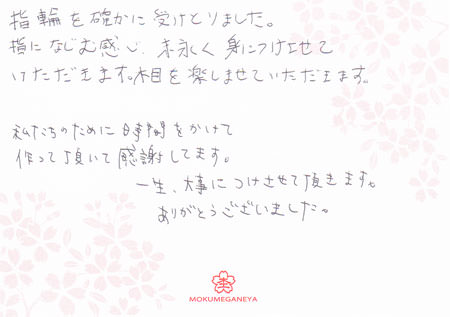 指輪を確かに受けとりました。
指になじむ感じ、末永く身につけさせて
いただきます。木目を楽しませていただきます。
私たちのために時間をかけて
作って頂いて感謝してます。
一生、大事につけさせて頂きます。
ありがとうございました。
MOKUMEGANEYA